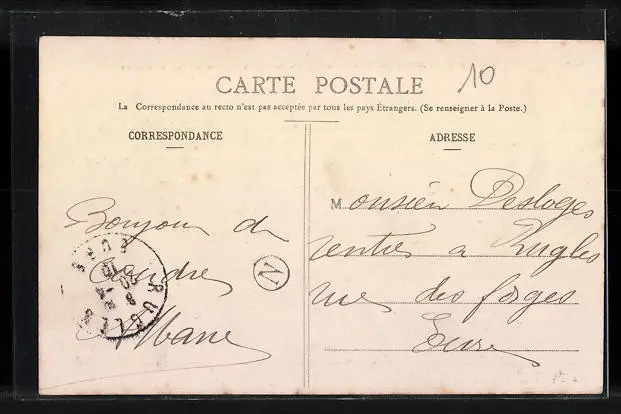 CARTE POSTALE
10
La Correspondance au recto n'est pas acceptée par tous les pays Étrangers. (Se renseigner à la Poste.)
CORRESPONDANCE
ADRESSE
Bonjour de
Condres
Monsieur Desloges
rentier a Rugles
rue des forges
Eure
N
RUGLES
EURE